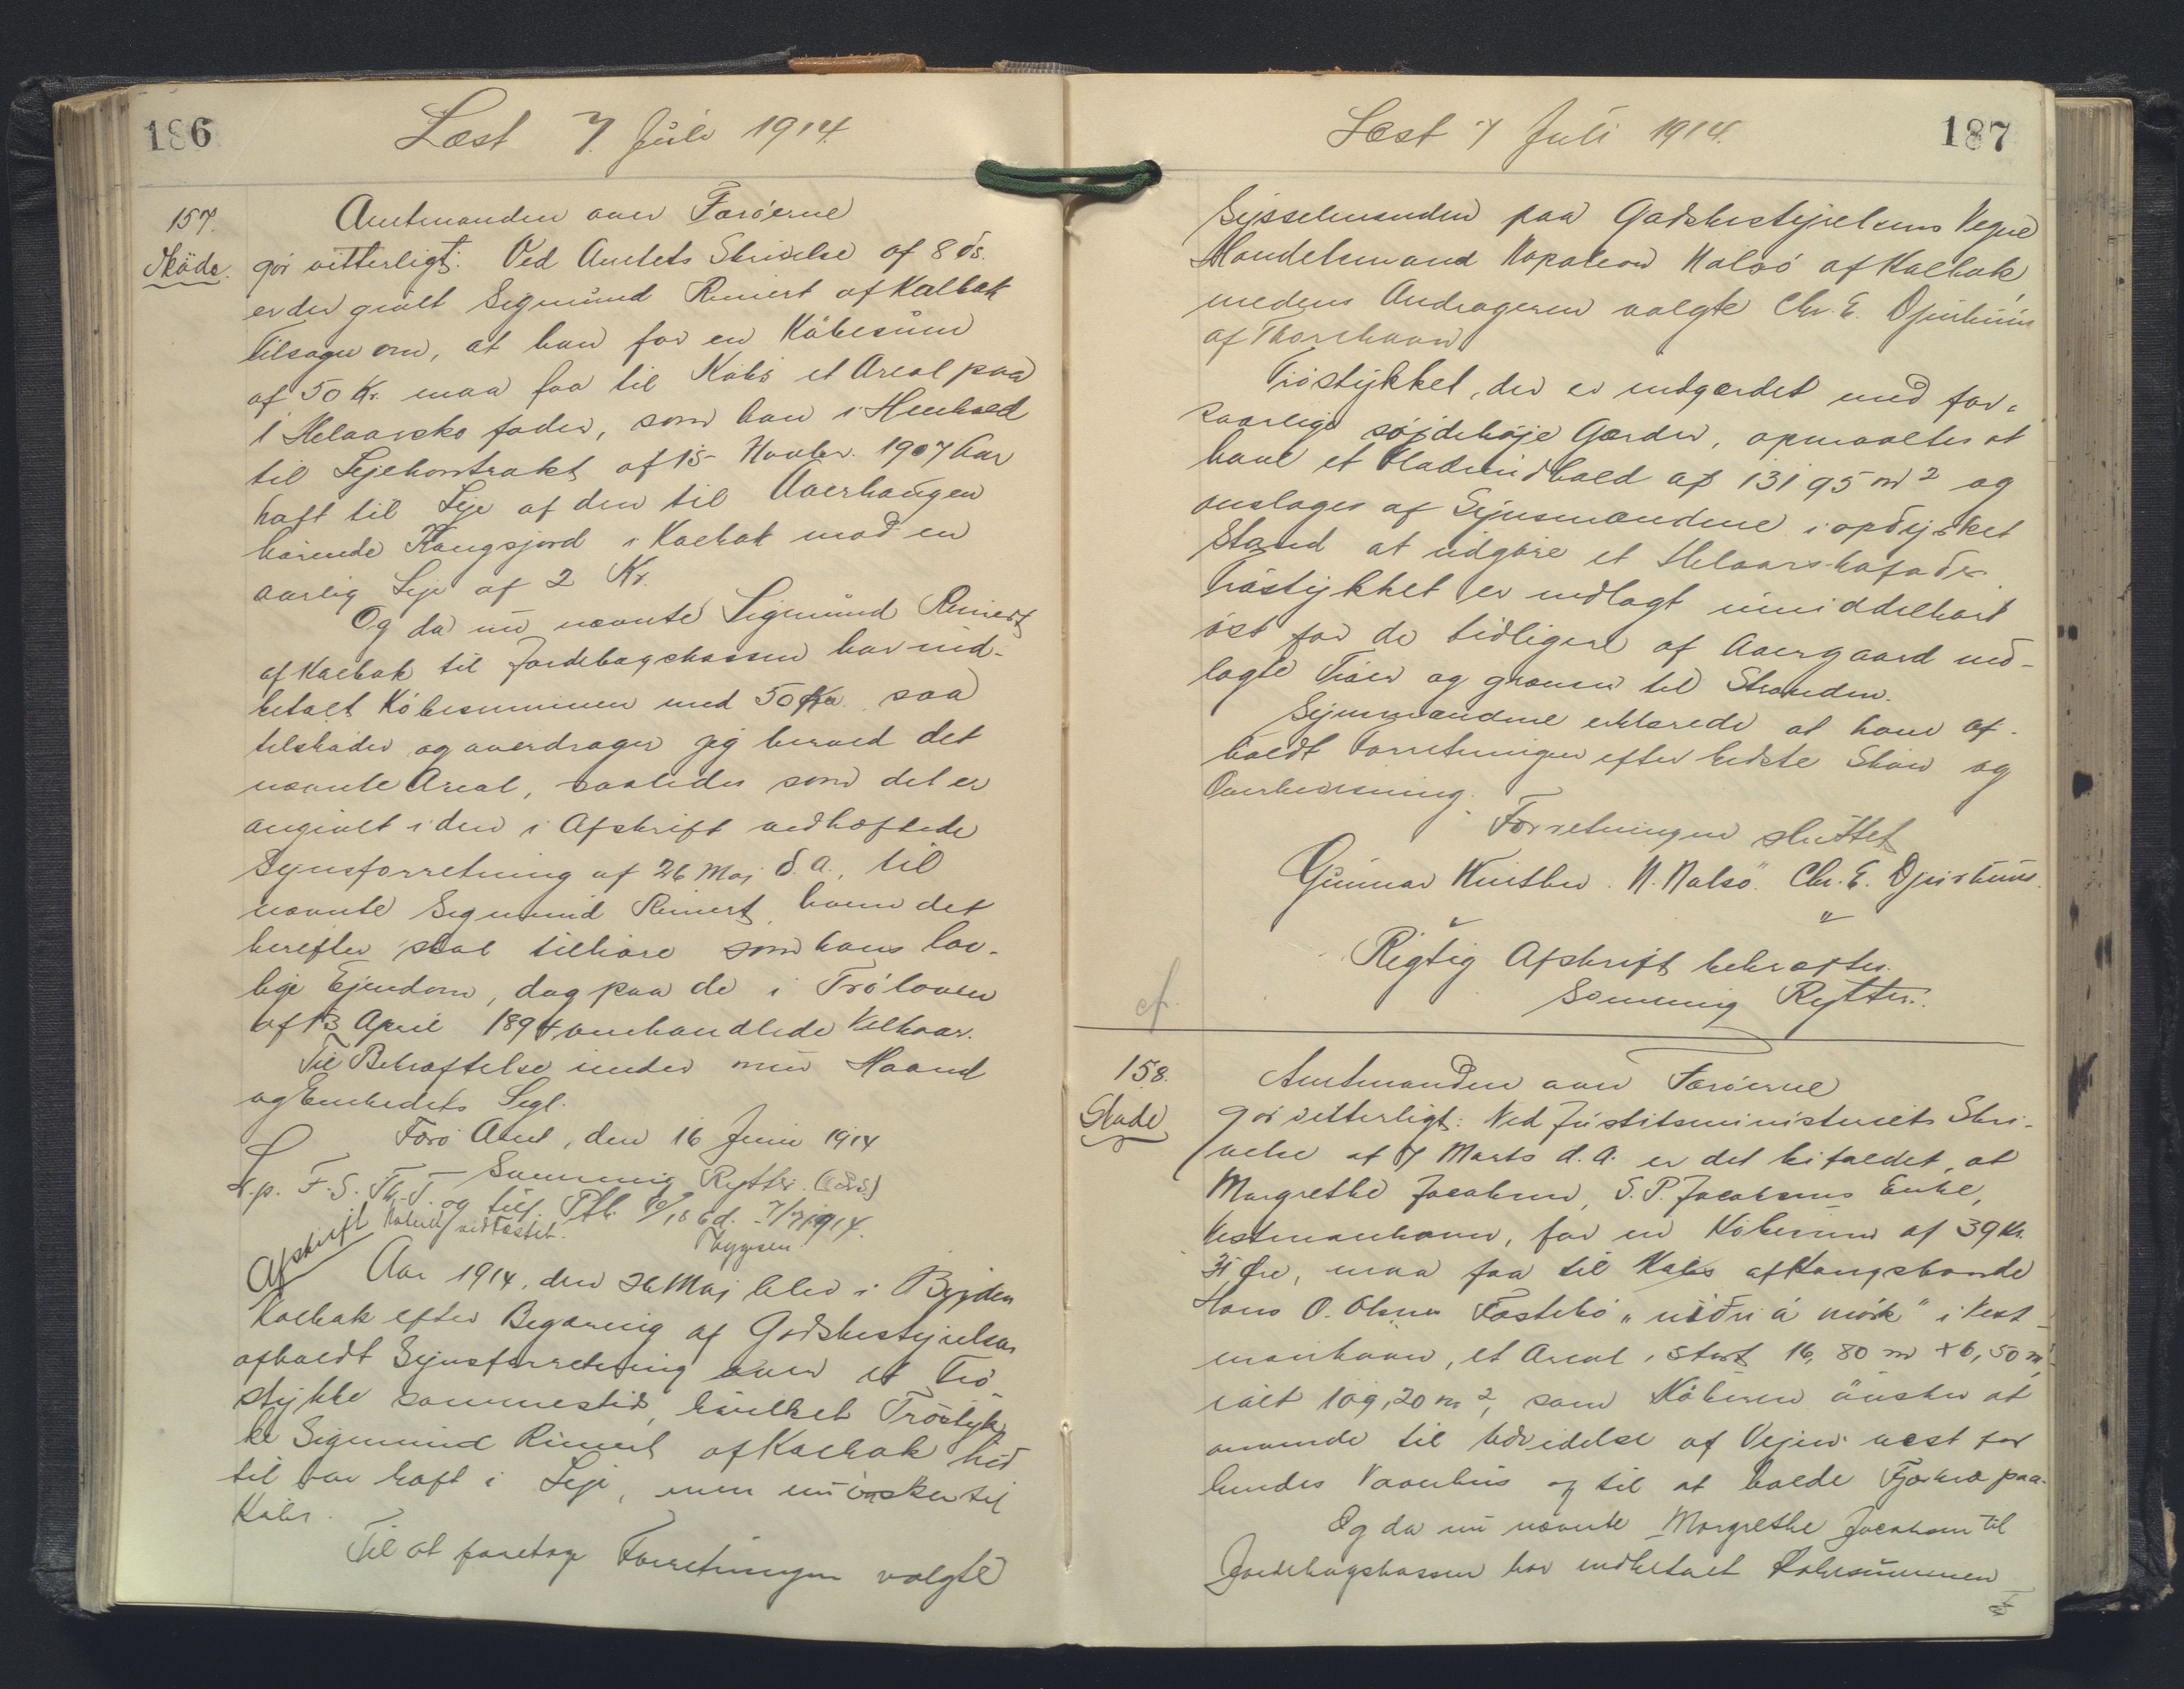 186
Læst 7. Juli 1914.
157.
Skøde.
Amtmanden over Færøerne
gör vitterligt: Ved Amtets Skrivelse af 8 ds.
er der givet Sigmund Reinert af Kalbak
Tilsagn om, at han for en Købesum
af 50 Kr. maa faa til Købs et Areal paa
1 Helaarsko foder, som han i Henhold
til Lejekontrakt af 15 Novbr. 1907 har
haft til Leje af den til Aaerhaugen
hørende Kongsjord i Kalbak mod en
aarlig Leje af 2 Kr.
Og da nu nævnte Sigmund Reinert
af Kalbak til Jordebogskassen har ind-
betalt Købesummen med 50 Kr. saa
tilskøder og overdrager jeg herved det
nævnte Areal, saaledes som det er
angivet i den i Afskrift vedhæftede
Synsforretning af 26 Maj d. A., til
nævnte Sigmund Reinert, hvem det
herefter skal tilhøre som hans lov-
lige Ejendom, dog paa de i Trøloven
af 13 April 1894 omhandlede Vilkaar.
Til Bekræftelse under min Haand
og Embedets Segl.
Færø Amt, den 16 Juni 1914
Svenning Rytter. (L.S.)
F. S. Th. T. og tilf. Ptb. 7/7 1914.
vedfæstet.
Afskrift
Aar 1914, den 26 Maj blev i Bygden
Kalbak efter Begæring af Godsbestyrelsen
afholdt Synsforretning over et Trö-
stykke sammesteds, hvilket Tröstyk-
ke Sigmund Reinert af Kalbak hid-
til har haft i Leje, men nu ønsker til
Købs.
Til at foretage Forretningen valgte
187
Læst 7 Juli 1914.
Sysselmanden paa Godsbestyrelsens Vegne
Handelsmand Napoleon Nalsö af Kalbak
medens Andrageren valgte Chr. E. Djurhuus
af Thorshavn
Tröstykket, der er indgærdet med for-
svarlige höje Gærder, opmaaltes at
have et Fladeindhold af 13195 m² og
anslages af Synsmændene i opdyrket
Stand at udgöre et Helaarskofoder.
Tröstykket er indlagt umiddelbart
öst for de tidligere af Aaergaard ud-
lagte Tröer og grænser til Stranden.
Synsmændene erklærede at have af-
holdt Forretningen efter bedste Skön og
Overbevisning.
Forretningen sluttet
Gunnar N. Nalsö. Chr. E. Djurhuus.
Rigtig Afskrift bekræftes.
Svenning Rytter.
cf.
158.
Skøde
Amtmanden over Færöerne
gör vitterligt: Ved Justitsministeriets Skri-
velse af 7 Marts d. A. er det bifaldet, at
Margrethe Jacobsen, S. P. Jacobsens Enke,
Vestmanhavn, for en Købesum af 39 Kr.
31 Øre, maa faa til Købs af Kongsbonde
Hans O. Olsens Fæstebö „niðri á mörk" i Vest-
manhavn, et Areal, stort 16,80 m × 6,50 m,
ialt 109,20 m², som Köberen önsker at
anvende til Udvidelse af Vejen vest for
hendes Vaanhus og til at holde Fjærkræ paa.
Og da nu nævnte Margrethe Jacobsen til
Jordebogskassen har indbetalt Købesummen